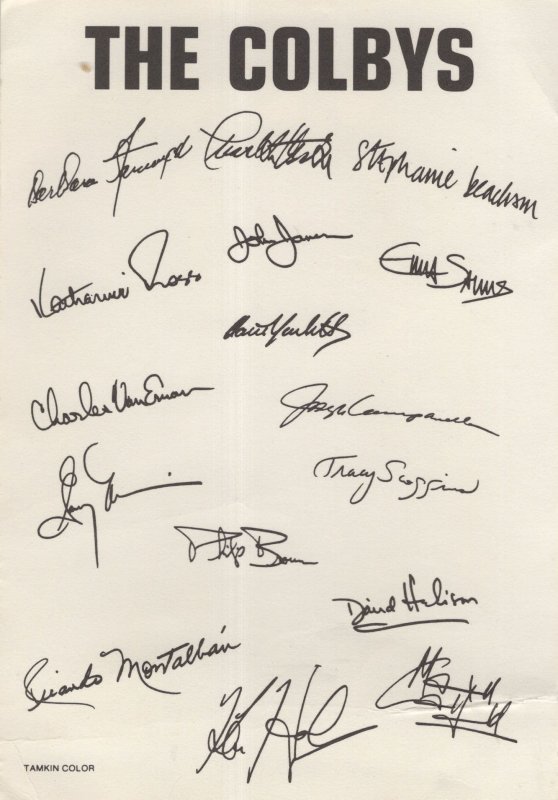 THE COLBYS
Barbara Stanwyck Charlton Heston Stephanie Beacham
John James
Katharine Ross Emma Samms
Charles Van Eman
Joseph Campanella
Tracy Scoggins
Philip Brown
David Hedison
Ricardo Montalbán
Ken Howard
TAMKIN COLOR